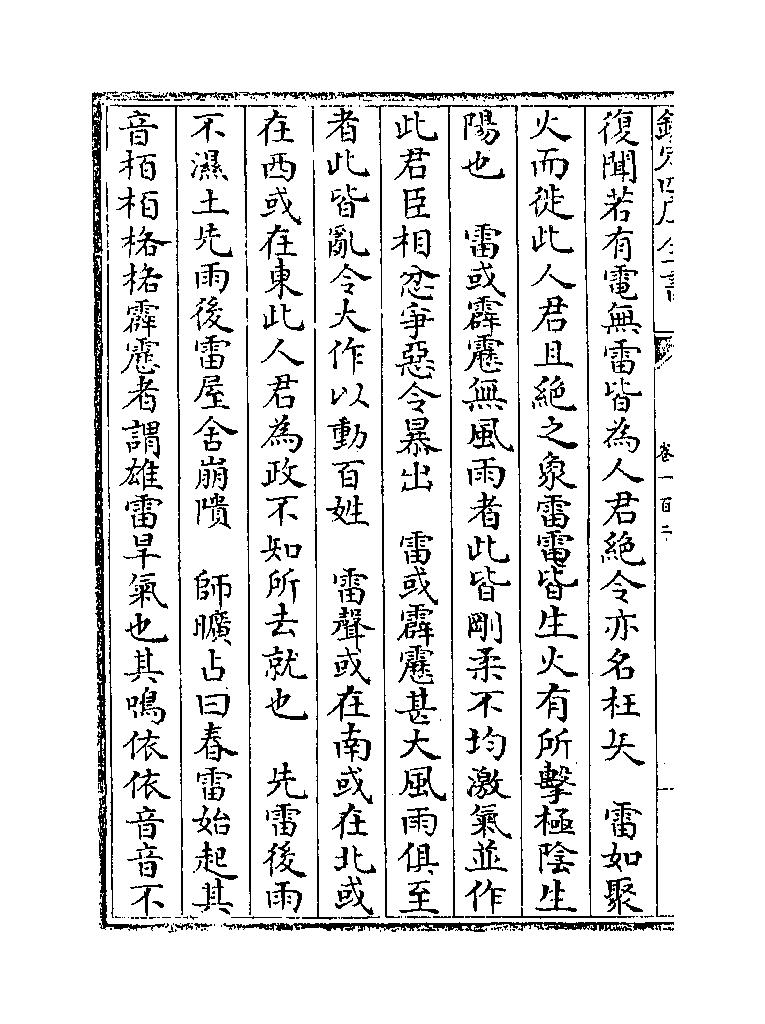 欽定四庫全書
卷一百二
復聞若有電無雷皆為人君絶令亦名枉矢　雷如聚
火而徙此人君且絶之象雷電皆生火有所擊極陰生
陽也　雷或霹靂無風雨者此皆剛柔不均激氣並作
此君臣相忿爭惡令暴出　雷或霹靂甚大風雨俱至
者此皆亂令大作以動百姓　雷聲或在南或在北或
在西或在東此人君為政不知所去就也　先雷後雨
不濕土先雨後雷屋舍崩隤　師曠占曰春雷始起其
音栢栢格格霹靂者謂雄雷旱氣也其鳴依依音音不